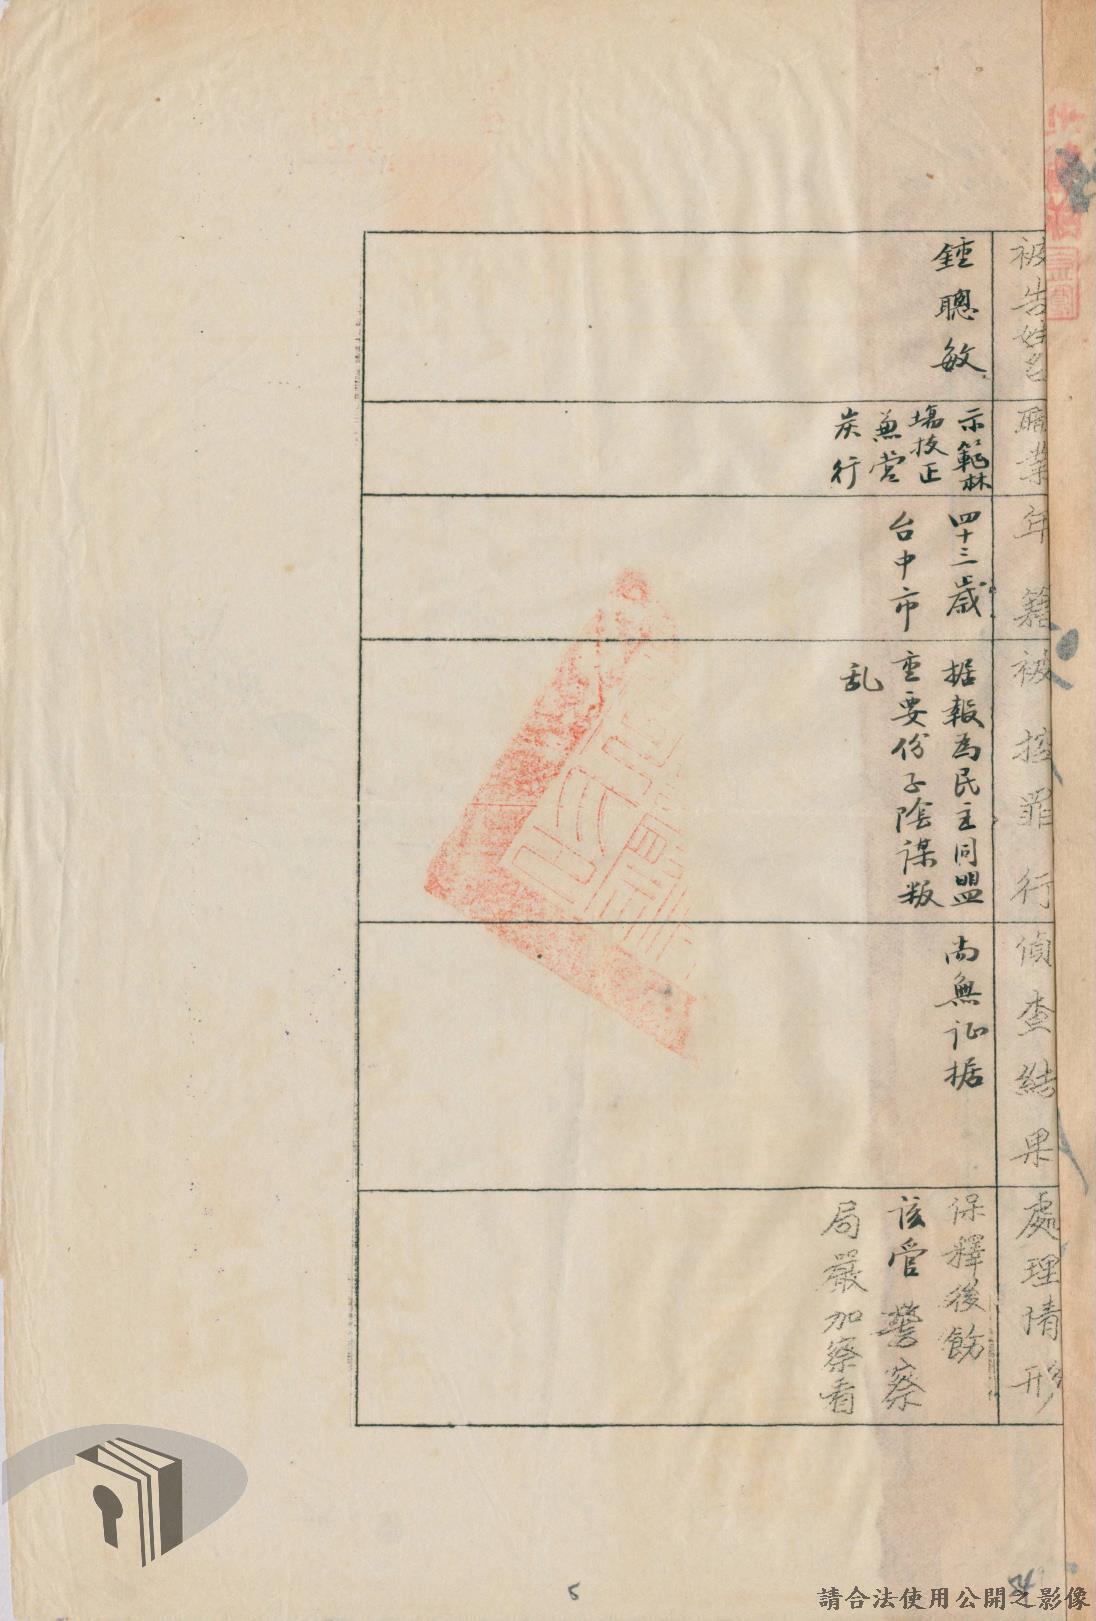 被告姓名
鍾聰敏
職業
示範林
場技正
兼営
炭行
年籍
四十三歲
台中市
被控罪行
据報為民主同盟
重要份子陰谋叛
乱
偵查結果
尚無证据
處理情形
保釋後飭
該管警察
局嚴加察看
5
請合法使用公開之影像